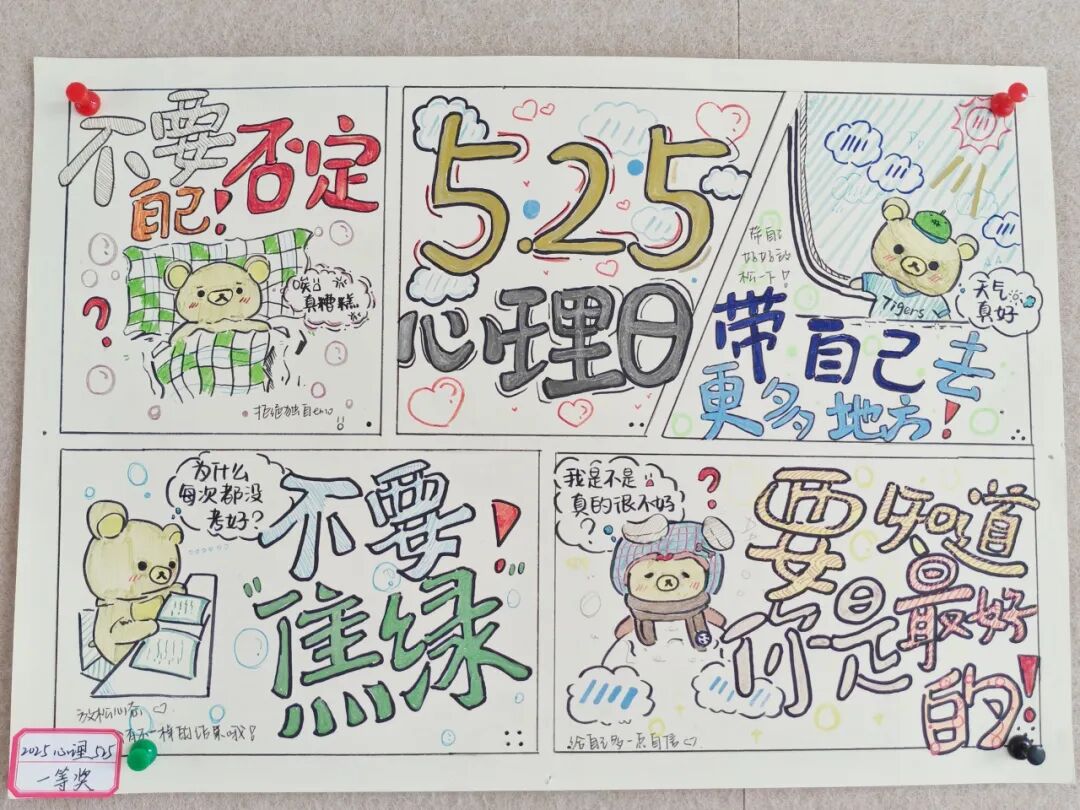 不要
自己!否定
唉!
真糟糕
?
拒绝独自emo
5.25
心理日
带自己
好好放
松一下!
Tigers
天气
真好
带自己去
更多地方!
为什么
每次都没
考好?
不要!
"焦绿"
放松心态
有不一样的结果哦!
我是不是
真的很不好
?
?
要知道
你是最好
的!
给自己多一点自信
2025心理525
一等奖